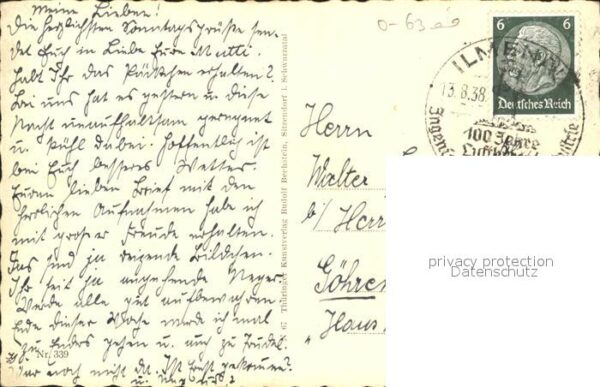 Meine Lieben!
Die herzlichsten Sonntagsgrüße sen-
det Euch in Liebe Eure Mutti.
Habt Ihr das Päckchen erhalten?
Bei uns hat es gestern u. diese
Nacht unaufhaltsam geregnet
u. kühl dabei. Hoffentlich ist
bei Euch besseres Wetter.
Euren lieben Brief mit den
herrlichen Aufnahmen habe ich
mit großer Freude erhalten.
Das sind ja reizende Bildchen.
Ihr seit ja angehende Neger.
Werde alle gut aufbewahren
Ende dieser Woche werd ich mal
zu gehen u. auch zu
War noch nicht da. Ist
u.
Nr. 339
67 Thüringer Kunstverlag Rudolf Bechstein, Sitzendorf i. Schwarzatal
0-63
6 6
Deutsches Reich
ILMENAU
13.8.38
100 Jahre
Herrn
Walter
b/ Herr
Göhren
"Haus
privacy protection
Datenschutz